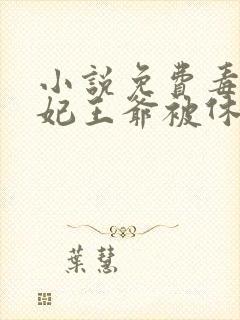 小說免費毒
妃王爺被休
葉慧